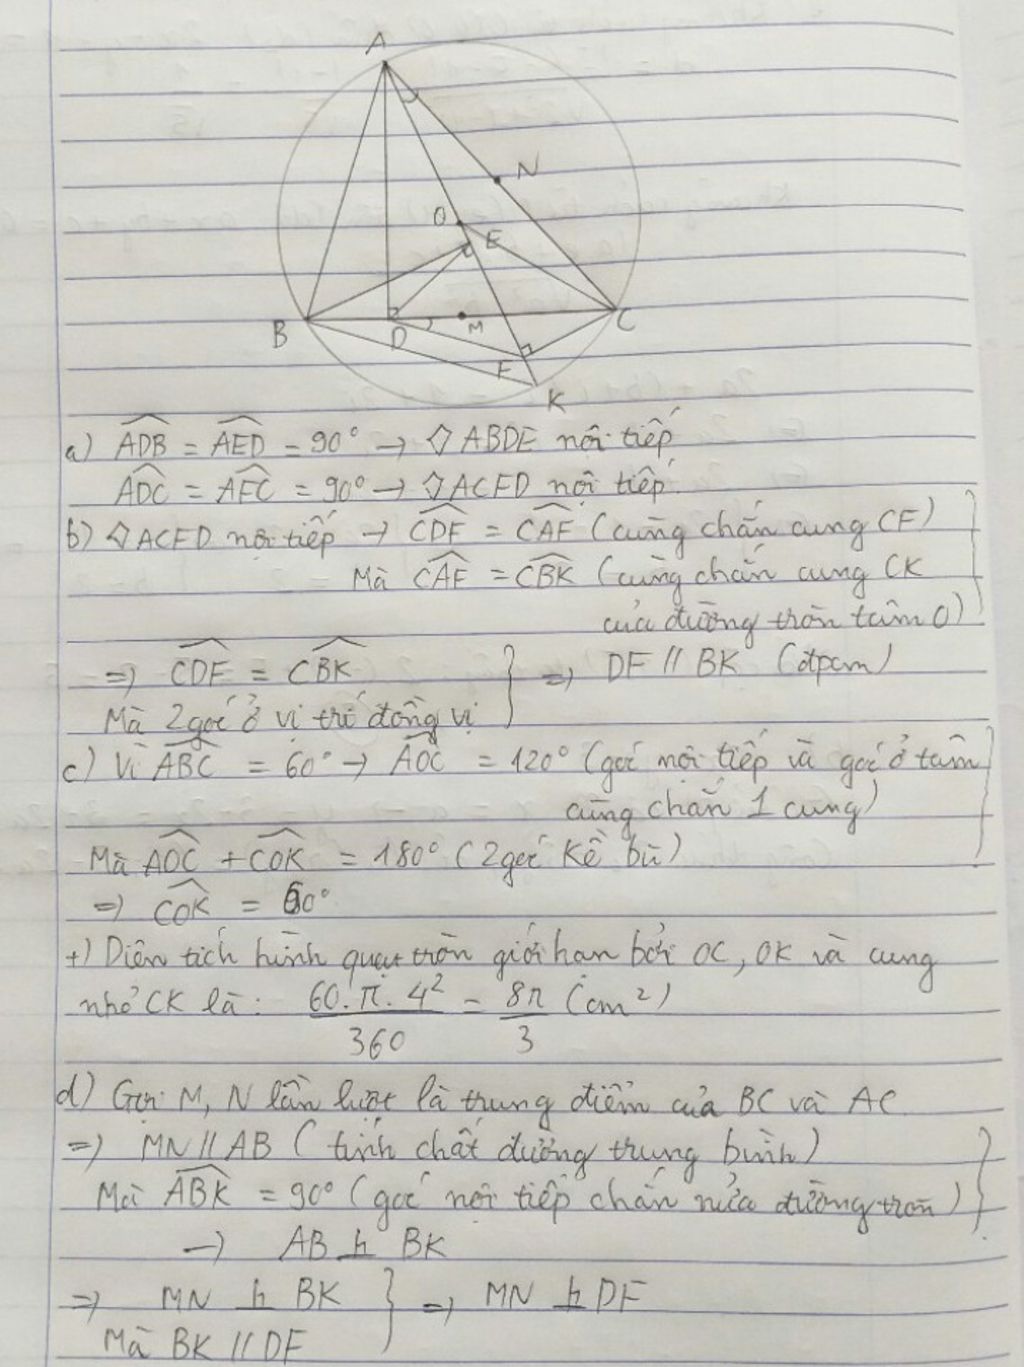 A
N
O
E
B
D
M
C
F
K
a) ADB = AED = 90° → ◊ ABDE nội tiếp
ADC = AFC = 90° → ◊ ACFD nội tiếp.
b) ◊ ACFD nội tiếp → CDF = CAF (cùng chắn cung CF)
Mà CAF = CBK (cùng chắn cung CK
của đường tròn tâm O)
=> CDF = CBK } => DF // BK (đpcm)
Mà 2 góc ở vị trí đồng vị
c) Vì ABC = 60° → AOC = 120° (góc nội tiếp và góc ở tâm
cùng chắn 1 cung)
Mà AOC + COK = 180° (2 góc kề bù)
=> COK = 60°
+) Diện tích hình quạt tròn giới hạn bởi OC, OK và cung
nhỏ CK là: 60.π.4²/360 = 8π/3 (cm²)
d) Gọi M, N lần lượt là trung điểm của BC và AC
=> MN // AB (tính chất đường trung bình)
Mà ABK = 90° (góc nội tiếp chắn nửa đường tròn)
→ AB ⊥ BK
=> MN ⊥ BK } => MN ⊥ DF
Mà BK // DF